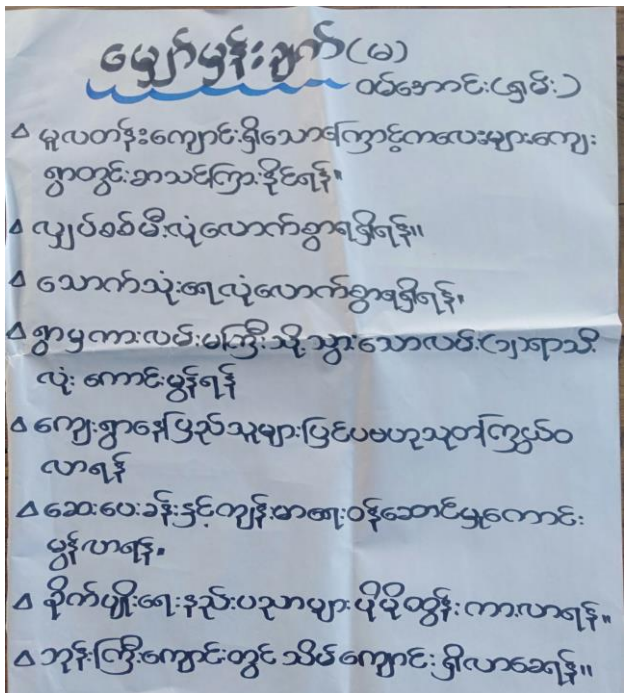 မျှော်မှန်းချက်(မ)
ဝမ်အောင်း(ရှမ်း)
မူလတန်းကျောင်းရှိသောကြောင့်ကလေးများကျေး
ရွာတွင်းစာသင်ကြားနိုင်ရန်။
လျှပ်စစ်မီးလုံလောက်စွာရရှိရန်။
သောက်သုံးရေလုံလောက်စွာရရှိရန်။
ရွာမှကားလမ်းမကြီးသို့သွားသောလမ်း(၃)ရာသီ
လုံး ကောင်းမွန်ရန်
ကျေးရွာနေပြည်သူများပြင်ပဗဟုသုတကြွယ်ဝ
လာရန်
ဆေးပေးခန်းနှင့်ကျန်းမာရေးဝန်ဆောင်မှုကောင်း
မွန်လာရန်။
စိုက်ပျိုးရေးနည်းပညာများပိုမိုတွန်းကားလာရန်။
ဘုန်းကြီးကျောင်းတွင် သိမ်ကျောင်းရှိလာစေရန်။